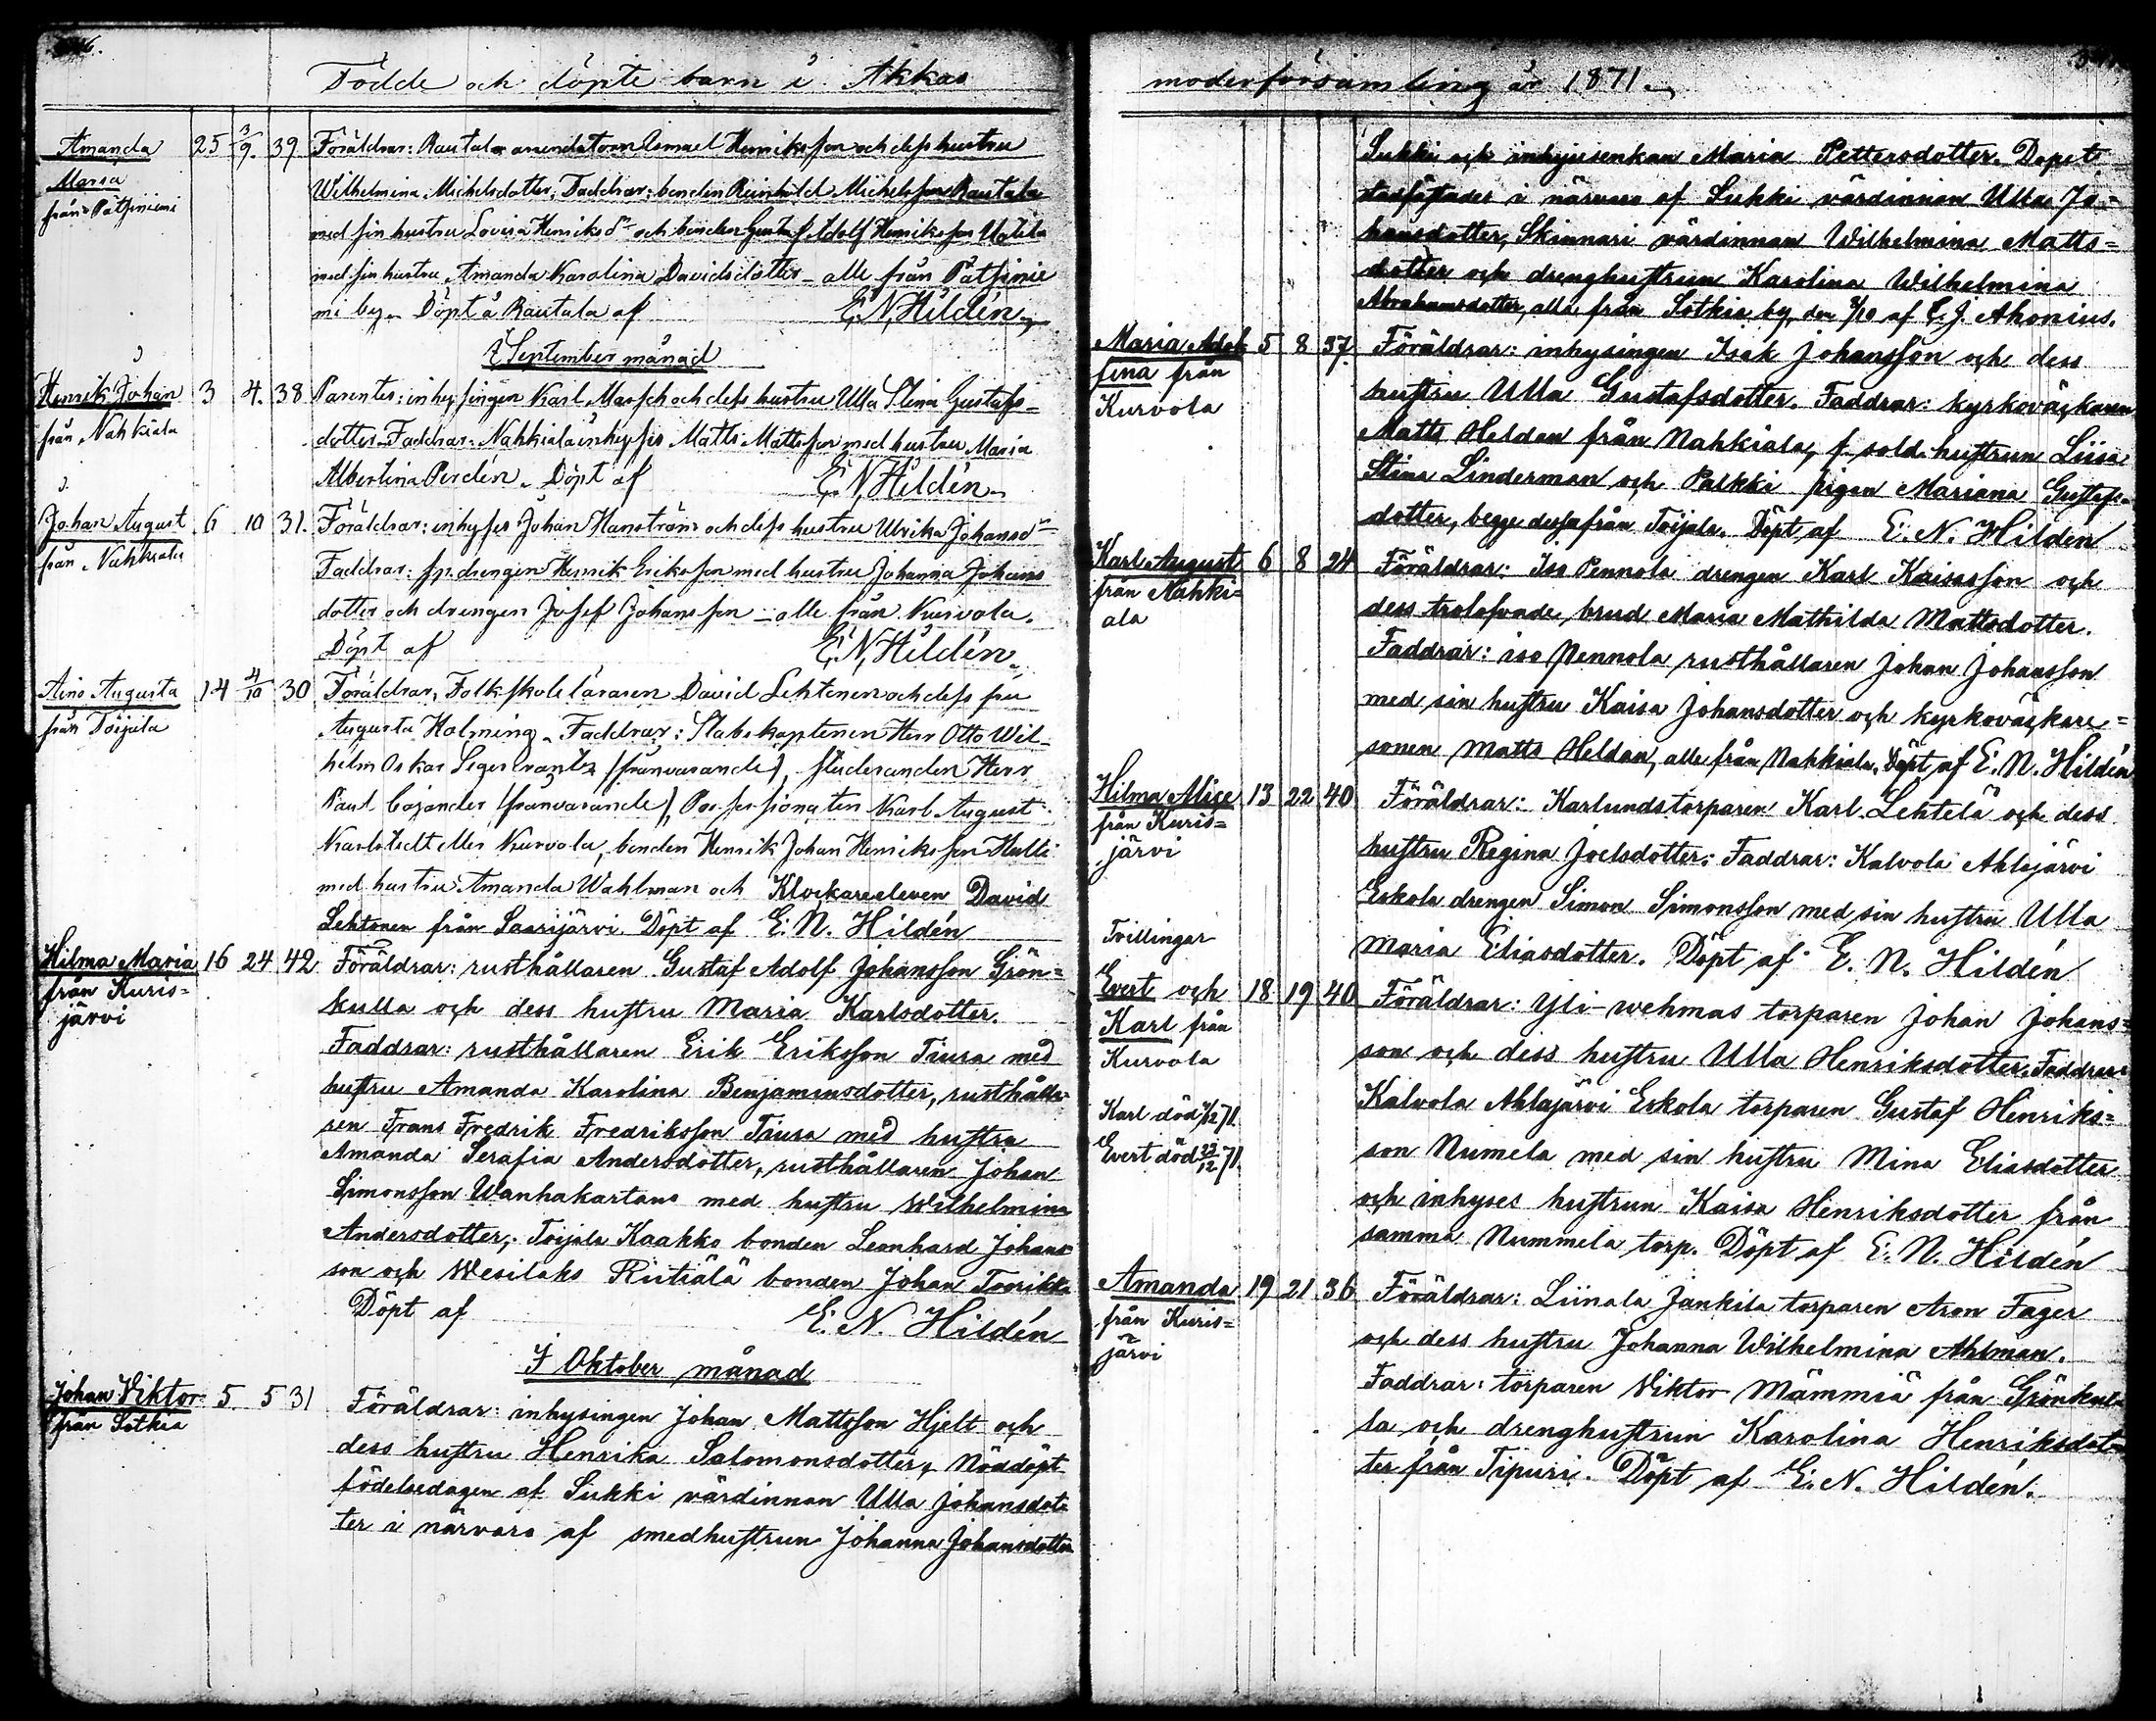 Födde och döpte barn i Akkas
Amanda 25 3/9. 39 Föräldrar: Rautala arendatorn Ismael Henriksson och dess hustru
Maria Wilhelmina Michelsdotter, Faddrar: bonden Reinhold Michelsson Rautala
från Pätsiniemi med sin hustru Lovisa Henriksdr och bonden Gustaf Adolf Henriksson Uotila
med sin hustru Amanda Karolina Davidsdotter – alle från Pätsinie
mi by. Döpt å Rautala af E. N. Hildén
I September månad
Henrik Johan 3 4. 38 Parentes: inhysingen Karl Marsch och dess hustru Ulla Stina Gustafs=
från Nahkiala dotter. Faddrar: Nahkiala inhyses Matts Mattsson med hustru Maria
Albertina Perdén. Döpt af E. N. Hildén
Johan August 6 10 31. Föräldrar: inhyses Johan Hanström och dess hustru Ulrika Johansdr
från Nahkiala Faddrar: drengen Henrik Eriksson med hustru Johanna Johans
dotter och drengen Josef Johansson – alle från Kurvola.
Döpt af E. N. Hildén
Aino Augusta 14 4/10 30 Föräldrar, Folkskoleläraren David Lehtonen och dess fru
från Toijala Augusta Holming. Faddrar: Stabskaptenen Herr Otto Wil=
helm Oskar Segercrantz (frånvarande), studeranden Herr
Paul Cajander (frånvarande), Possessionaten Karl August
Karlstedt Kurvola, bonden Henrik Johan Henriksson Hulli
med hustru Amanda Wahlman och Klockareeleven David
Lehtonen från Saarijärvi Döpt af E. N. Hildén
Hilma Maria 16 24 42 Föräldrar: rusthållaren Gustaf Adolf Johansson Grön=
från Kuris= kulla och dess hustru Maria Karlsdotter.
järvi Faddrar: rusthållaren Erik Eriksson Tiura med
hustru Amanda Karolina Benjaminsdotter, rusthålla
ren Frans Fredrik Fredriksson Tiura med hustru
Amanda Serafia Andersdotter, rusthållaren Johan
Simonsson Wanhakartano med hustru Wilhelmina
Andersdotter, Toijala Kaakko bonden Leonhard Johans
son och Wesilaks Riitiälä bonden Johan Toorikka
Döpt af E. N. Hildén
I Oktober månad
Johan Viktor 5. 5 31 Föräldrar: inhysingen Johan Mattsson Hjelt och
från Sotkia dess hustru Henrika Salomonsdotter, Nöddöpt
födelsedagen af Sukki värdinnan Ulla Johansdot
ter i närvaro af smedhustrun Johanna Johansdotter
moderförsamling år 1871.
Sukki och inhysesenkan Maria Pettersdotter. Dopet
stadfästades i närvaro af Sukki värdinnan Ulla Jo=
hansdotter, Skinnari värdinnan Wilhelmina Matts=
dotter och drenghustrun Karolina Wilhelmina
Abrahamsdotter, alla från Sotkia by, den /10 af C. J. Ahonius.
Maria Adol 5 8 37. Föräldrar: inhysingen Isak Johansson och dess
fina från hustru Ulla Gustafsdotter. Faddrar: kyrkoväckaren
Kurvola Matts Heldan från Nahkiala, f. sold. hustrun Liisa
Stina Linderman och Palkki pigan Mariana Gustafs=
dotter, begge dessa från Toijala. Döpt af E. N. Hildén
Karl August 6 8 24 Föräldrar: Iso Pennola drengen Karl Kaisasson och
från Nahki= dess trolofvade brud Maria Mathilda Mattsdotter.
ala Faddrar: iso Pennola rusthållaren Johan Johansson
med sin hustru Kaisa Johansdotter och kyrkoväckare=
sonen Matts Heldan, alle från Nahkiala. Döpt af E. N. Hildén
Hilma Alice 13 22 40 Föräldrar: Karlundstorparen Karl Lehtelä och dess
från Kuris= hustru Regina Joelsdotter. Faddrar: Kalvola Ahlajärvi
järvi Eskola drengen Simon Simonsson med sin hustru Ulla
Maria Eliasdotter. Döpt af E. N. Hildén
Tvillingar
Evert och 18 19 40 Föräldrar: Yli-wehmas torparen Johan Johans=
Karl från son och dess hustru Ulla Henriksdotter. Faddrar:
Kurvola Kalvola Ahlajärvi Eskola torparen Gustaf Henriks=
Karl död /12 71. son Numela med sin hustru Mina Eliasdotter
Evert död 23/12 71. och inhyses hustrun Kaisa Henriksdotter från
samma Nummela torp. Döpt af E. N. Hildén
Amanda 19 21 36 Föräldrar: Liinala Jankila torparen Aron Fager
från Kuris= och dess hustru Johanna Wilhelmina Ahlman.
järvi Faddrar: torparen Viktor Mämmiä från Grönkul=
la och drenghustrun Karolina Henriksdot=
ter från Tipuri. Döpt af E. N. Hildén.